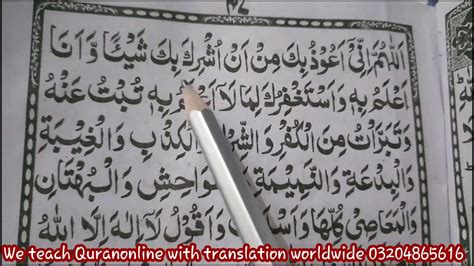 اَللّٰهُمَّ اِنِّیْۤ اَعُوْذُ بِكَ مِنْ اَنْ اُشْرِكَ بِكَ شَیْئًا وَّ اَنَا
اَعْلَمُ بِهٖ وَ اَسْتَغْفِرُكَ لِمَا لَاۤ بِهٖ تُبْتُ عَنْهُ
وَتَبَرَّاْتُ مِنَ الْكُفْرِ وَالشِّرْكِ الْكِذْبِ وَالْغِیْبَةِ
وَالْبِدْعَةِ وَالنَّمِیْمَةِ وَالْبُهْتَانِ
وَالْمَعَاصِیْ كُلِّهَا وَاَقُوْلُ لَاۤ اِلٰهَ اِلَّا اللّٰهُ
We teach Quranonline with translation worldwide 03204865616